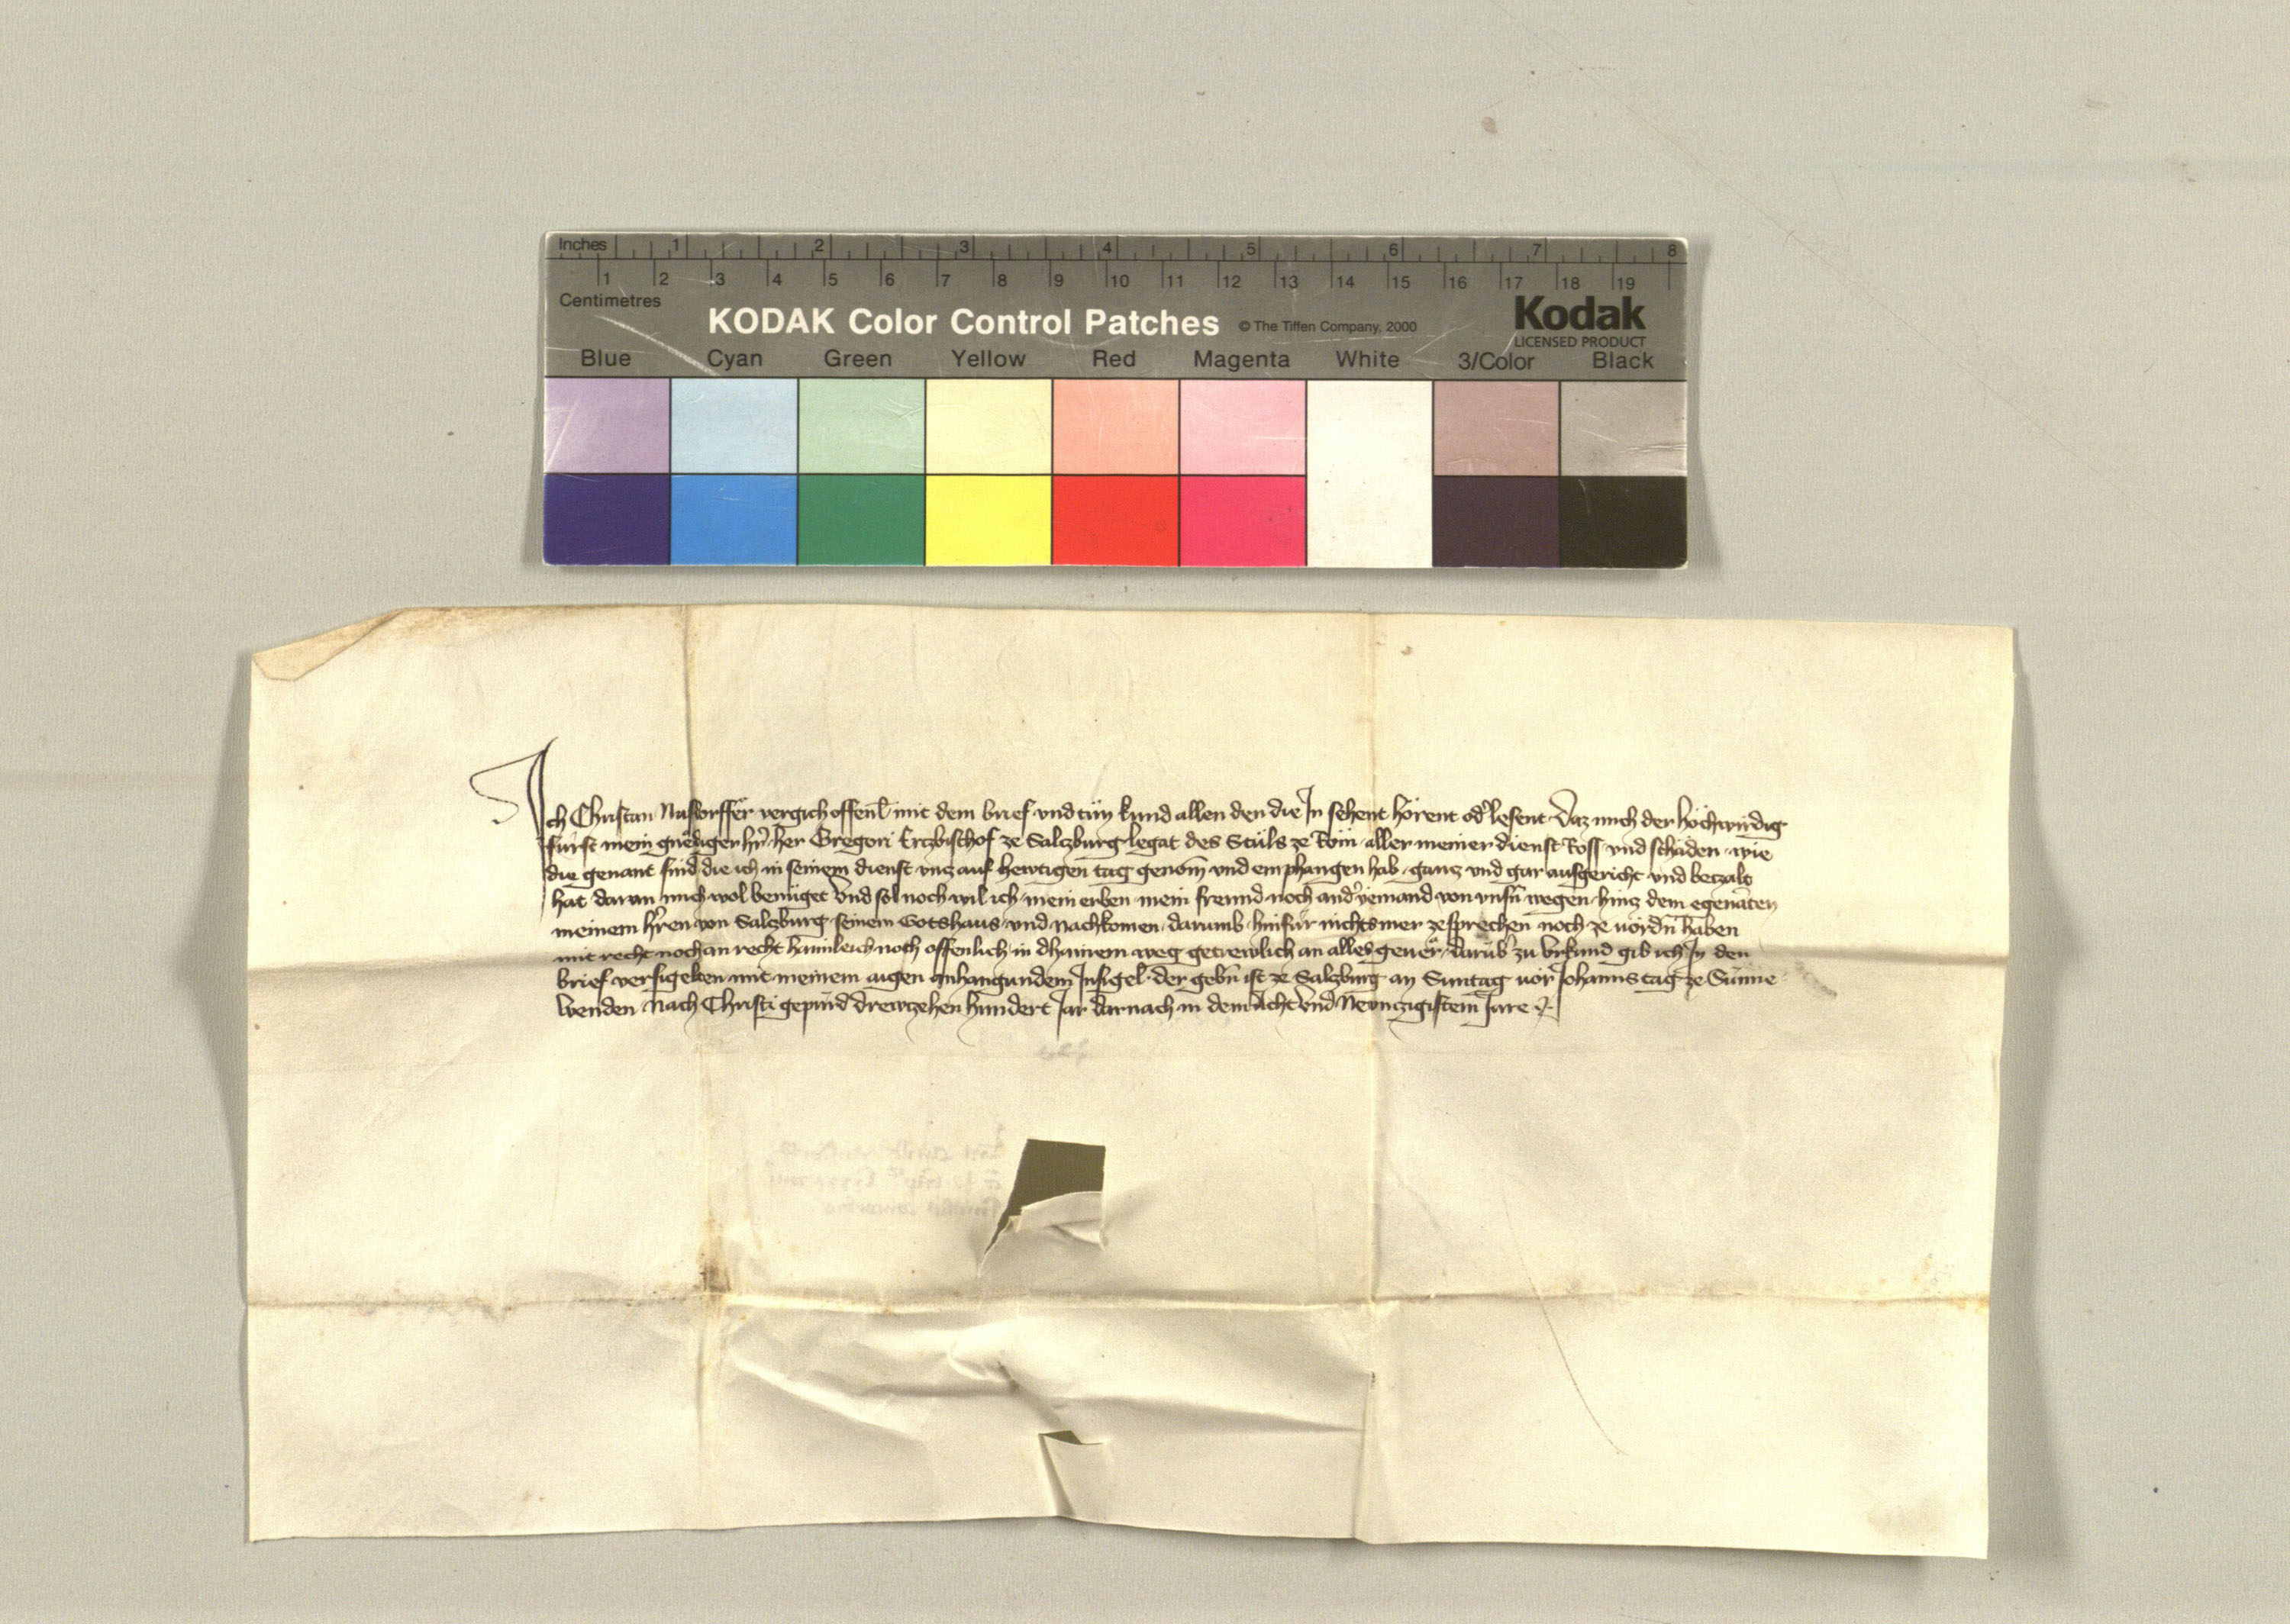 Inches 1 2 3 4 5 6 7 8
1 2 3 4 5 6 7 8 9 10 11 12 13 14 15 16 17 18 19
Centimetres
KODAK Color Control Patches © The Tiffen Company, 2000 Kodak
LICENSED PRODUCT
Blue Cyan Green Yellow Red Magenta White 3/Color Black
Ich Christan Nusdorffer vergich offenl mit dem brief vnd tün kund allen den die In sehent hörent od lesent Daz mich der höchwirdig
fürst mein gnediger hr her Gregori Ertzbischof ze Salczburg legat des Stüls ze Röm aller meiner dienst Ross vnd schäden wie
die genant sind die ich in seinem dienst vnz auf hewtigen tag genom vnd emphangen hab gancz vnd gar ausgericht vnd betzalt
hat daran mich wol benüget Vnd sol noch wil ich mein erben mein freund noch and yemand von vnsn wegen hincz dem egenäten
meinem hren von Salczburg seinem Gotshaus vnd nachkomen darumb hinfür nichts mer ze sprechen noch ze uördn haben
mit recht noch an recht haimleich noch offenlich in dhainem weg getrewlich an alles geuer darüb zu vrkund gib ich In den
brief versigelten mit meinem aigen anhangundem Insigel der gebn ist ze Salczburg an Suntag uör Johanns tag ze Sunne
wenden Nach Christi gepürd drewzehen hundert Jar darnach in dem Acht vnd Newnczigistem Jare